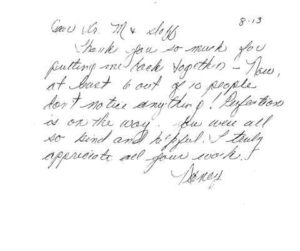 8-13
Dr. M & Staff
Thank you so much for
putting me back together - Now,
at least 6 out of 10 people
don't notice anything! Perfection
is on the way. You were all
so kind and helpful. I truly
appreciate all your work.
Nancy